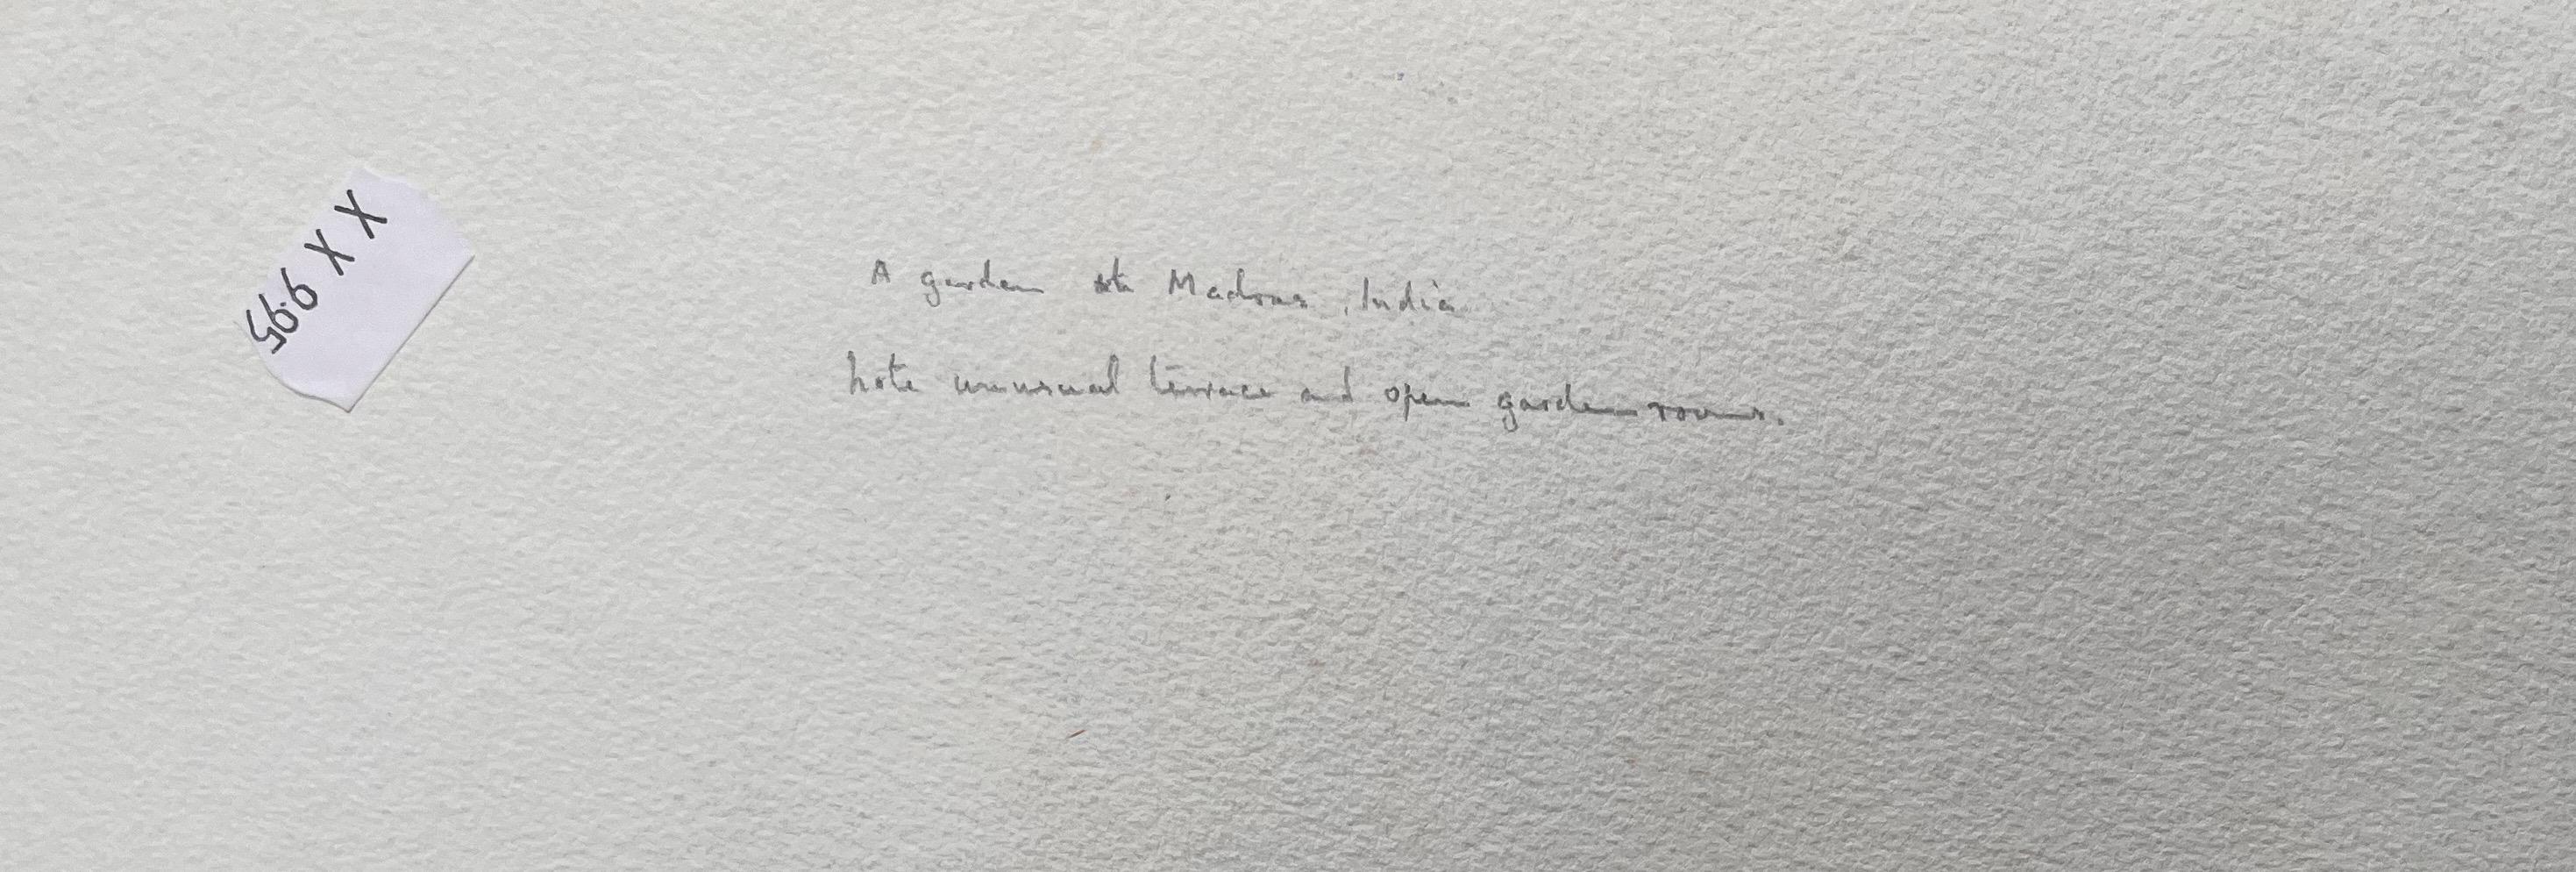 X X 9.95
A garden at Madras, India
Note unusual terrace and open garden rooms.